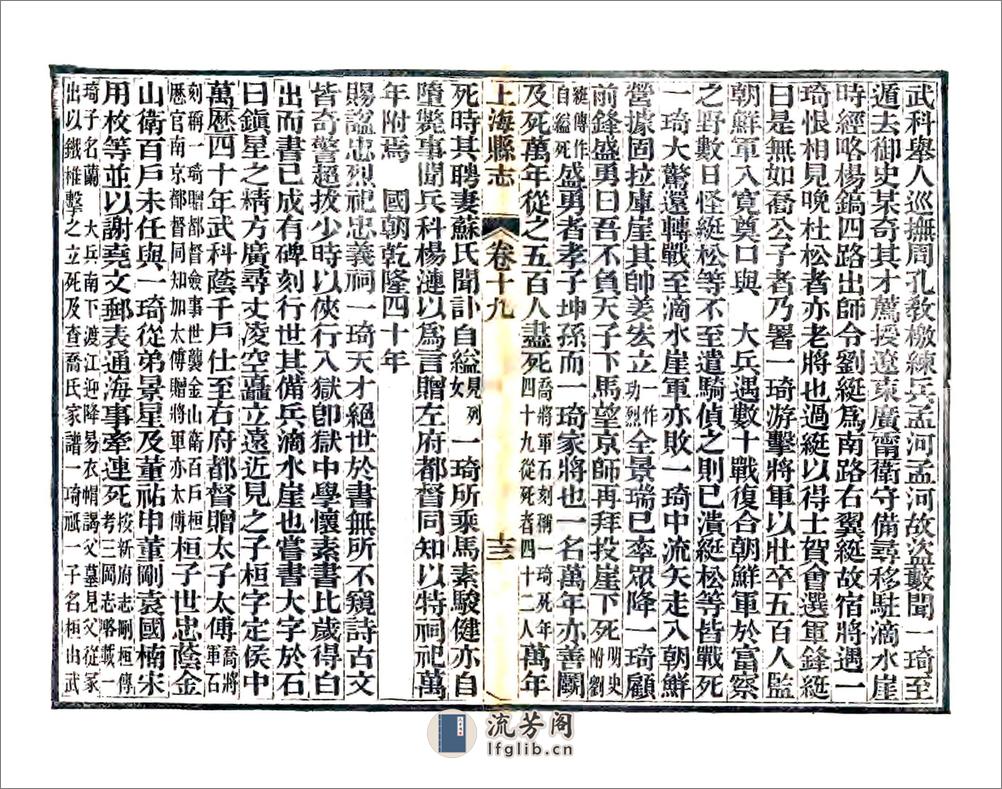 武科舉人巡撫周孔教檄練兵孟河孟河故盜藪聞一琦至
遁去御史某奇其才薦授遼東廣甯衛守備尋移駐滴水崖
時經略楊鎬四路出師令劉綎爲南路右翼綎故宿將遇一
琦恨相見晚杜松者亦老將也過綎以得士賀會選軍鋒綎
曰是無如喬公子者乃署一琦游擊將軍以壯卒五百人監
朝鮮軍入寬奠口與 大兵遇數十戰復合朝鮮軍於富察
之野數日怪綎松等不至遣騎偵之則已潰綎松等皆戰死
一琦大驚還轉戰至滴水崖軍亦敗一琦中流矢走入朝鮮
營據固拉庫崖其帥姜宏立一作功烈全景瑞已率眾降一琦顧
前鋒盛勇曰吾不負天子下馬望京師再拜投崖下死明史附劉
綎傳作自縊死盛勇者孝子坤孫而一琦家將也一名萬年亦善鬬
及死萬年從之五百人盡死喬將軍石刻稱一琦死年四十九從死者四十二人萬年
上海縣志 卷十九 十三
死時其聘妻蘇氏聞訃自縊見列女一琦所乘馬素駿健亦自
墮斃事聞兵科楊漣以爲言贈左府都督同知以特祠祀萬
年附焉 國朝乾隆四十年
賜謚忠烈祀忠義祠一琦天才絕世於書無所不窺詩古文
皆奇警超拔少時以俠行入獄卽獄中學懷素書比歲得白
出而書已成有碑刻行世其備兵滴水崖也嘗書大字於石
曰鎭星之精方廣尋丈凌空矗立遠近見之子桓字定侯中
萬歷四十年武科蔭千戶仕至右府都督贈太子太傅喬將軍石
刻稱一琦贈都督僉事世襲金山衛百戶桓歷官南京都督同知加太傅贈將軍亦太傅桓子世忠蔭金
山衛百戶未任與一琦從弟景星及董祐申董剛袁國楠宋
用枚等並以謝堯文郵表通海事牽連死按新府志刪桓傳考三岡志略載一
琦子名蘭 大兵南下渡江迎降易衣帽謁父墓見父從冢出以鐵椎擊之立死及查喬氏家譜一琦祇一子名桓由武
流芳阁
lfglib.cn